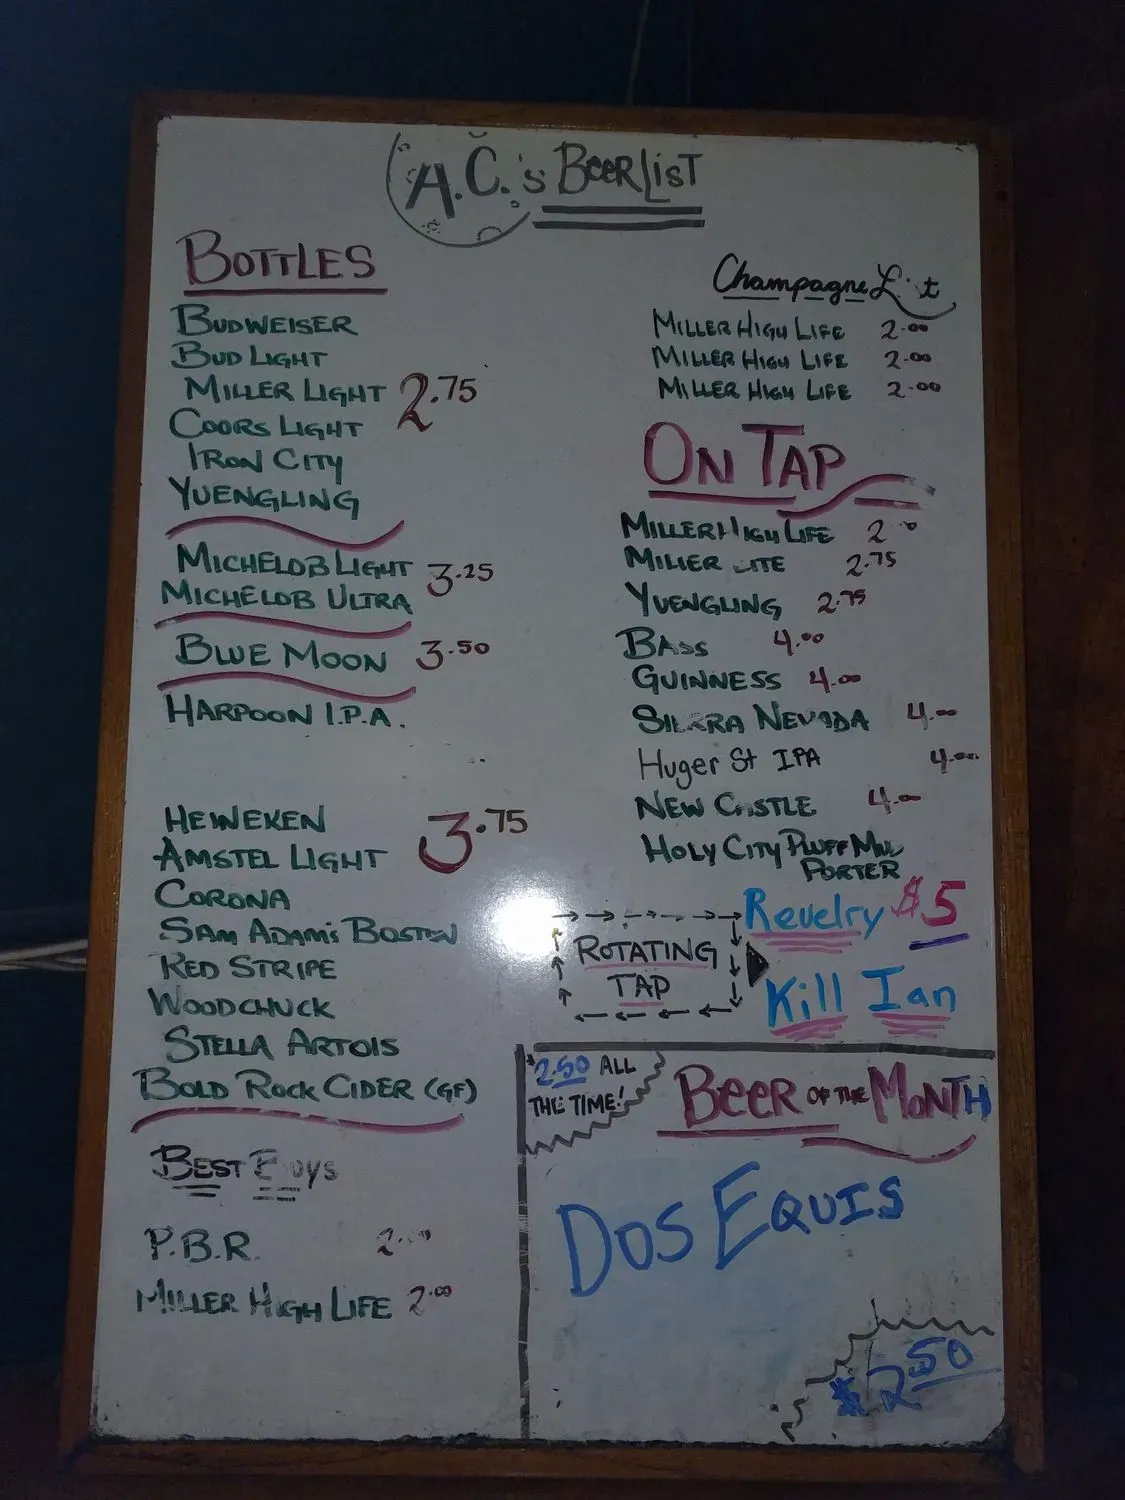 A.C.'s BEER LIST
BOTTLES
BUDWEISER
BUD LIGHT
MILLER LIGHT 2.75
COORS LIGHT
IRON CITY
YUENGLING
MICHELOB LIGHT 3.25
MICHELOB ULTRA
BLUE MOON 3.50
HARPOON I.P.A.
HEINEKEN
AMSTEL LIGHT 3.75
CORONA
SAM ADAM'S BOSTON
RED STRIPE
WOODCHUCK
STELLA ARTOIS
BOLD ROCK CIDER (GF)
BEST Buys
P.B.R. 2.00
MILLER HIGH LIFE 2.00
Champagne List
MILLER HIGH LIFE 2.00
MILLER HIGH LIFE 2.00
MILLER HIGH LIFE 2.00
ON TAP
MILLER HIGH LIFE 2
MILLER LITE 2.75
YUENGLING 2.75
BASS 4.00
GUINNESS 4.00
SIERRA NEVADA 4.00
Huger St IPA 4.00
NEW CASTLE 4.00
HOLY CITY PLUFF MUD
PORTER
ROTATING
TAP
Revelry $5
Kill Ian
2.50 ALL
THE TIME!
BEER OF THE MONTH
DOS EQUIS
$2.50